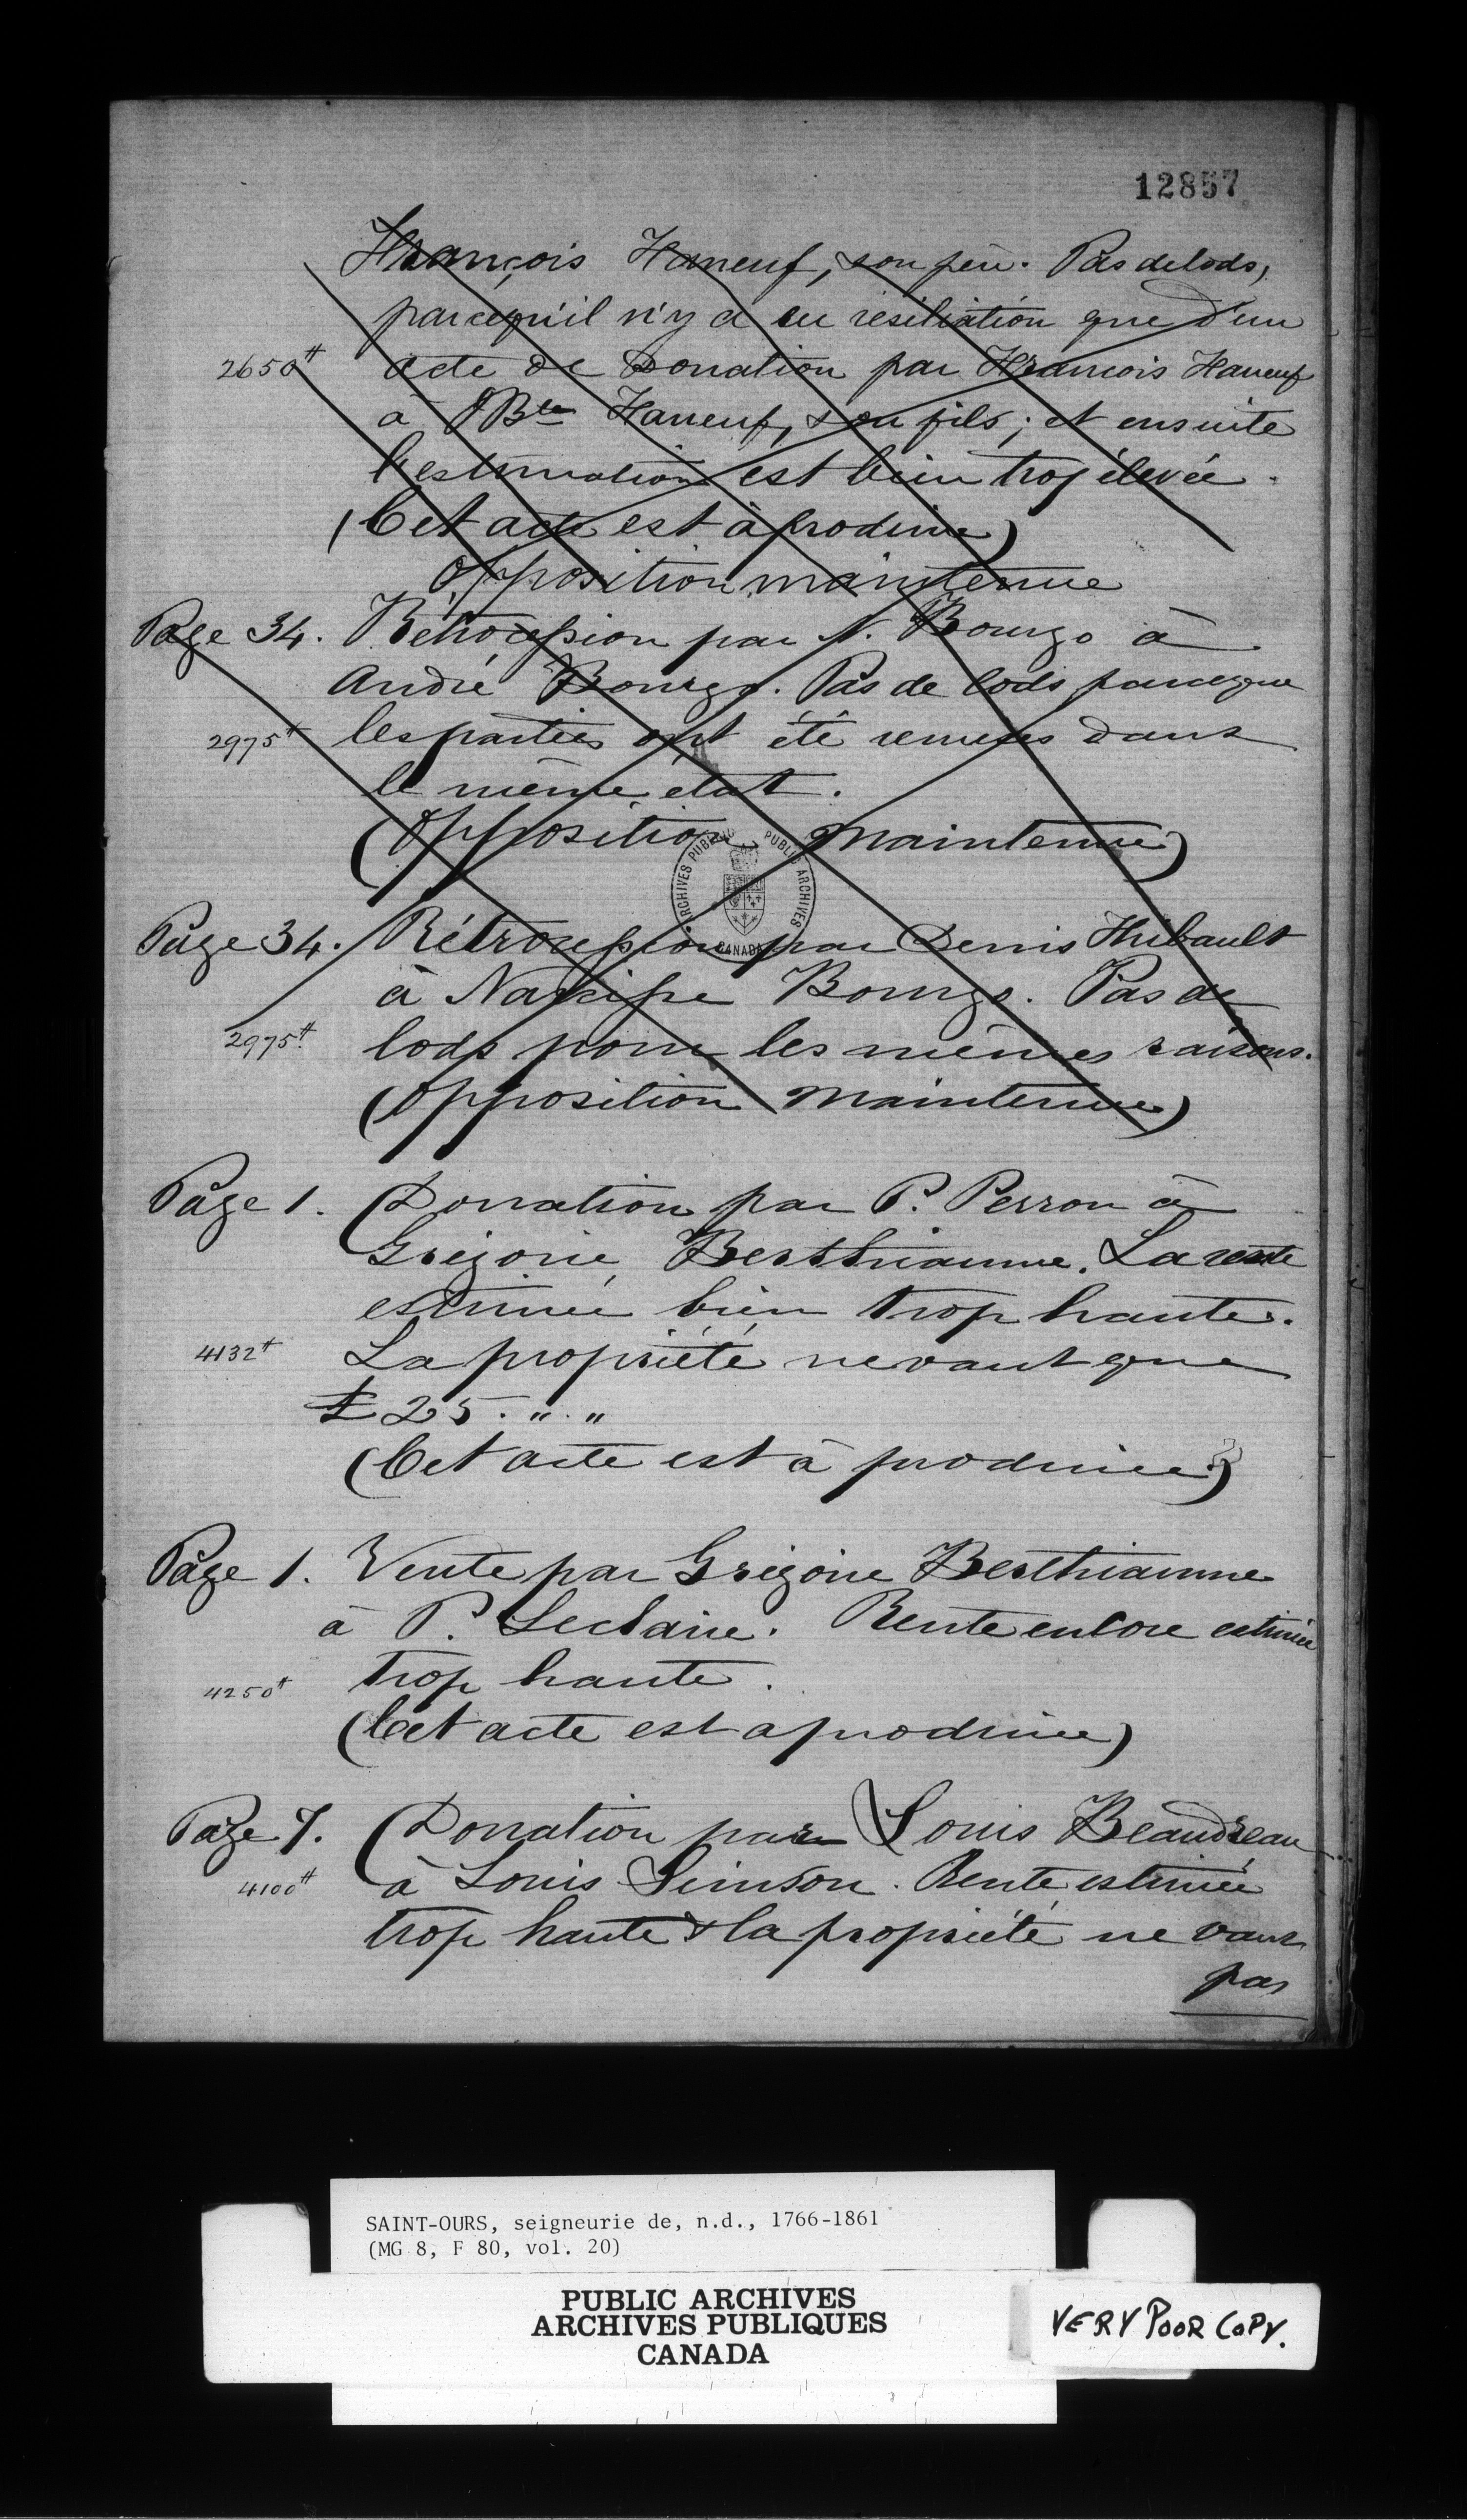 12857
François Haneuf, son père. Pas de lods,
parcequ'il n'y a eu résiliation que d'un
2650# acte de Donation par François Haneuf
à JBte Haneuf, son fils; et ensuite
l'estimation est bien trop élevée.
(Cet acte est à produire)
Opposition maintenue
Page 34. Rétrocession par N. Bourgo à
André Bourgo. Pas de lods parceque
2975# les parties ont été remises dans
le même état.
(Opposition maintenue)
Page 34. Rétrocession par Denis Thibault
à Narcisse Bourgo. Pas de
2975# lods pour les mêmes raisons.
(Opposition maintenue)
Page 1. Donation par P. Perron à
Grégoire Berthiaume. La rente
estimée bien trop haute.
4132# La propriété ne vaut que
£25. " . "
(Cet acte est à produire)
Page 1. Vente par Grégoire Berthiaume
à P. Leclaire. Rente encore estimée
4250# trop haute.
(Cet acte est a produire)
Page 7. Donation par Louis Beaudreau
4100# à Louis Simson. Rente estimée
trop haute & la propriété ne vaut
pas
ARCHIVES PUBLIQUES PUBLIC ARCHIVES
CANADA
SAINT-OURS, seigneurie de, n.d., 1766-1861
(MG 8, F 80, vol. 20)
PUBLIC ARCHIVES
ARCHIVES PUBLIQUES
CANADA
VERY POOR COPY.